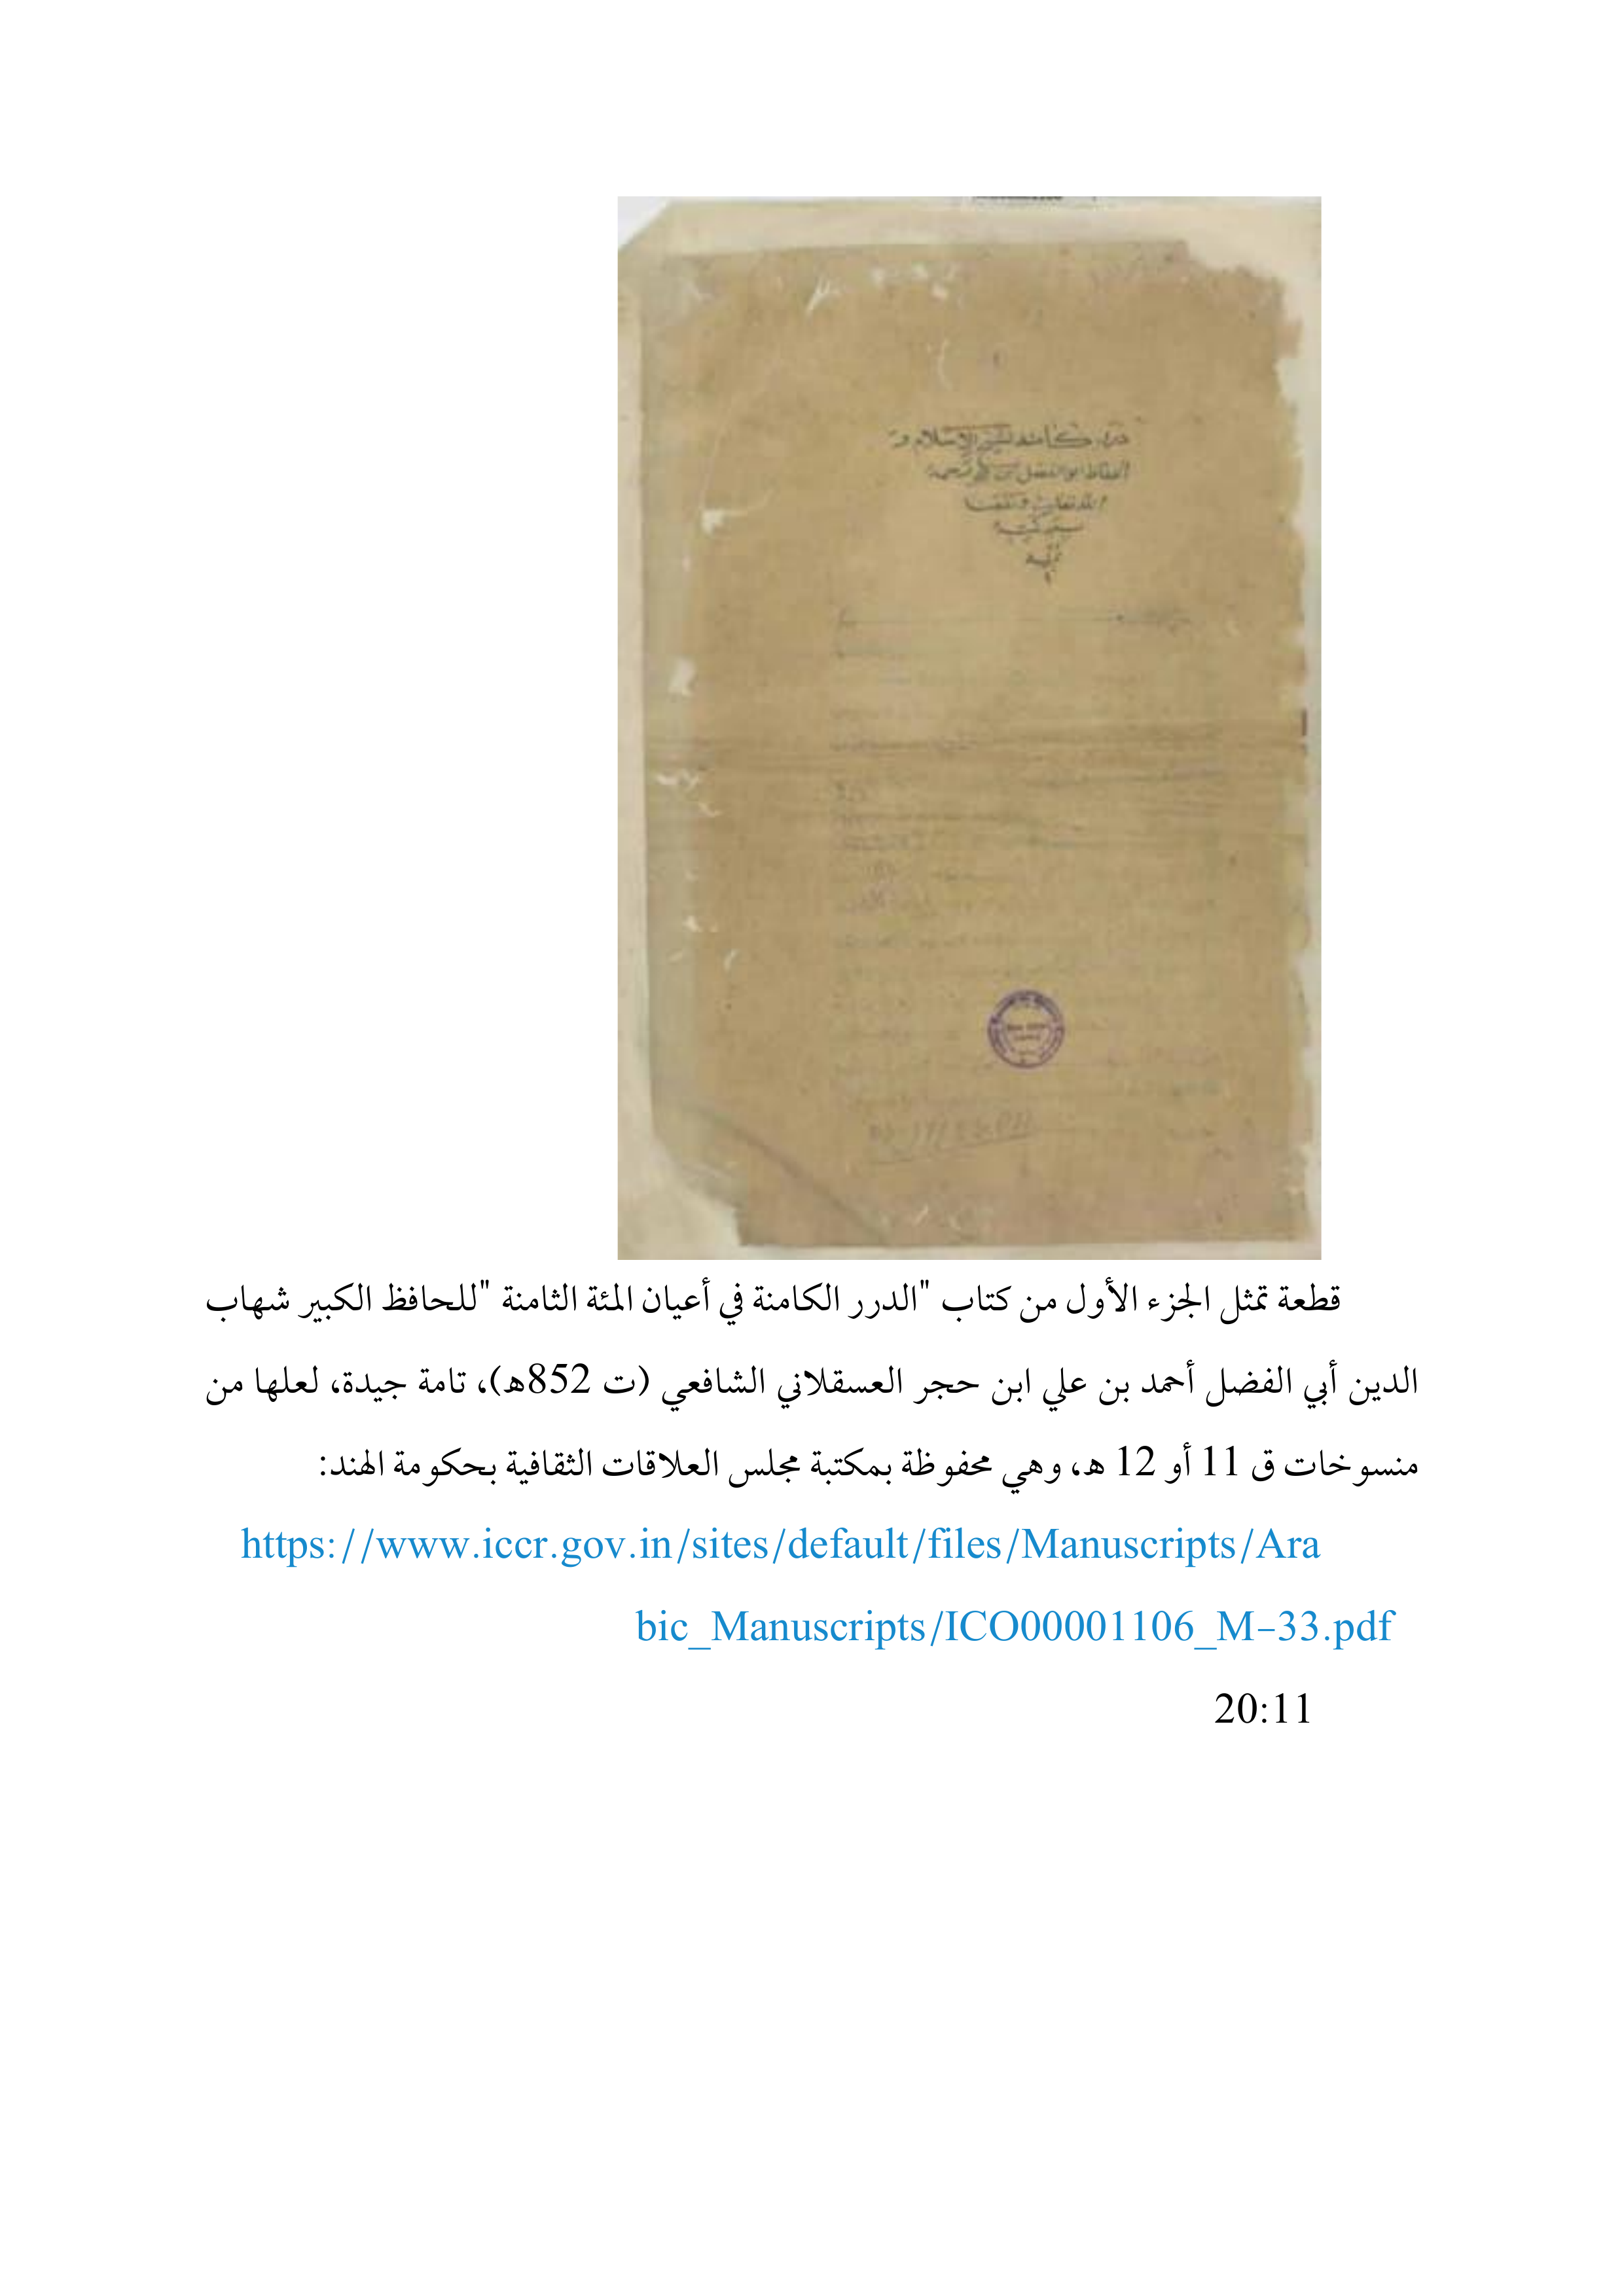 الإسلام
ابو الفضل
قطعة تمثل الجزء الأول من كتاب "الدرر الكامنة في أعيان المئة الثامنة "للحافظ الكبير شهاب
الدين أبي الفضل أحمد بن علي ابن حجر العسقلاني الشافعي (ت 852هـ)، تامة جيدة، لعلها من
منسوخات ق 11 أو 12 هـ، وهي محفوظة بمكتبة مجلس العلاقات الثقافية بحكومة الهند:
https://www.iccr.gov.in/sites/default/files/Manuscripts/Ara
bic_Manuscripts/ICO00001106_M-33.pdf
20:11